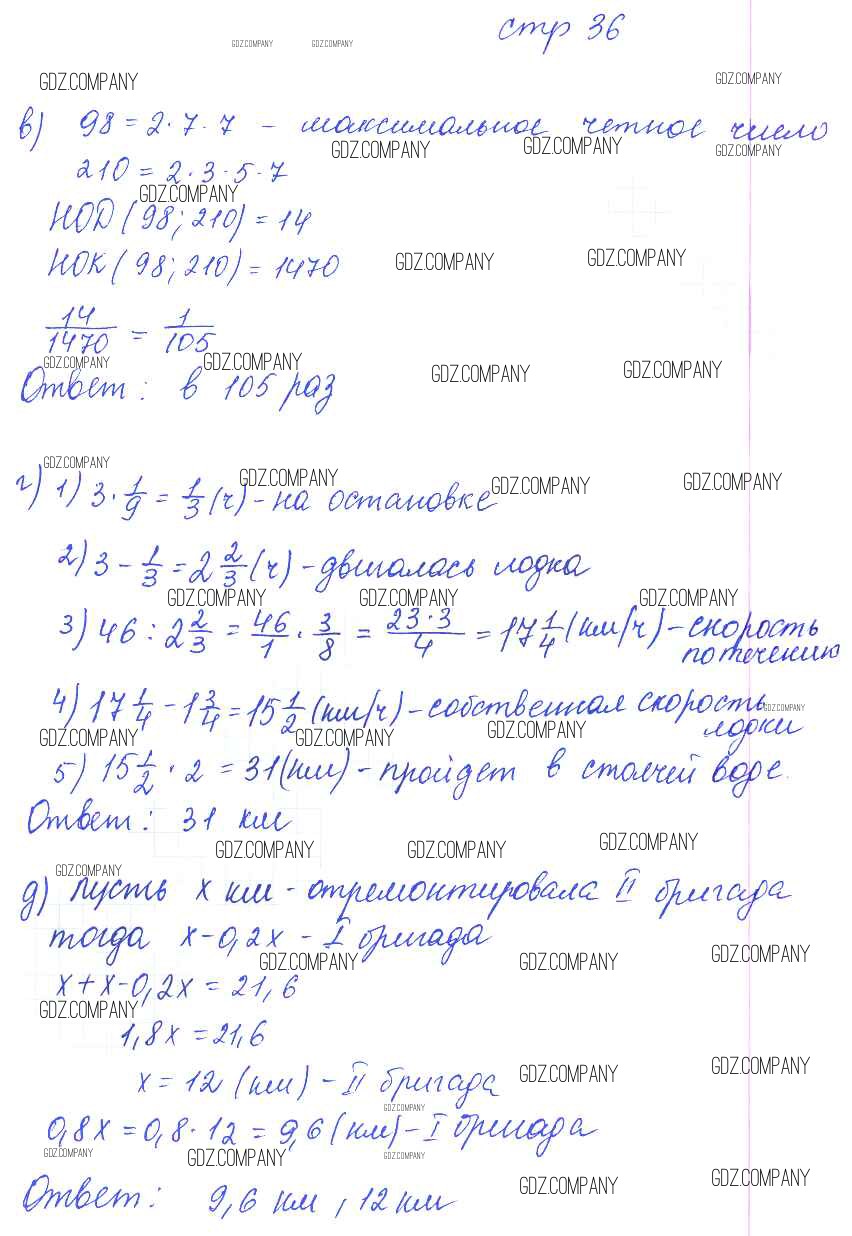 стр 36
GDZ.COMPANY GDZ.COMPANY
GDZ.COMPANY GDZ.COMPANY
в) 98 = 2 · 7 · 7 - максимальное четное число
GDZ.COMPANY GDZ.COMPANY GDZ.COMPANY
210 = 2 · 3 · 5 · 7
GDZ.COMPANY
НОД (98; 210) = 14
НОК (98; 210) = 1470
GDZ.COMPANY GDZ.COMPANY
14/1470 = 1/105
GDZ.COMPANY GDZ.COMPANY GDZ.COMPANY GDZ.COMPANY
Ответ: в 105 раз
GDZ.COMPANY GDZ.COMPANY GDZ.COMPANY GDZ.COMPANY
г) 1) 3 · 1/9 = 1/3 (ч) - на остановке
2) 3 - 1/3 = 2 2/3 (ч) - двигалась лодка
GDZ.COMPANY GDZ.COMPANY GDZ.COMPANY
3) 46 : 2 2/3 = 46/1 · 3/8 = 23·3/4 = 17 1/4 (км/ч) - скорость
по течению
4) 17 1/4 - 1 3/4 = 15 1/2 (км/ч) - собственная скорость
GDZ.COMPANY
лодки
GDZ.COMPANY GDZ.COMPANY GDZ.COMPANY
5) 15 1/2 · 2 = 31 (км) - пройдет в стоячей воде.
Ответ: 31 км
GDZ.COMPANY GDZ.COMPANY GDZ.COMPANY
GDZ.COMPANY
д) Пусть x км - отремонтировала II бригада
тогда x - 0,2x - I бригада
GDZ.COMPANY GDZ.COMPANY GDZ.COMPANY
x + x - 0,2x = 21,6
GDZ.COMPANY
1,8x = 21,6
x = 12 (км) - II бригада
GDZ.COMPANY GDZ.COMPANY
GDZ.COMPANY
0,8x = 0,8 · 12 = 9,6 (км) - I бригада
GDZ.COMPANY GDZ.COMPANY GDZ.COMPANY
Ответ: 9,6 км, 12 км
GDZ.COMPANY GDZ.COMPANY